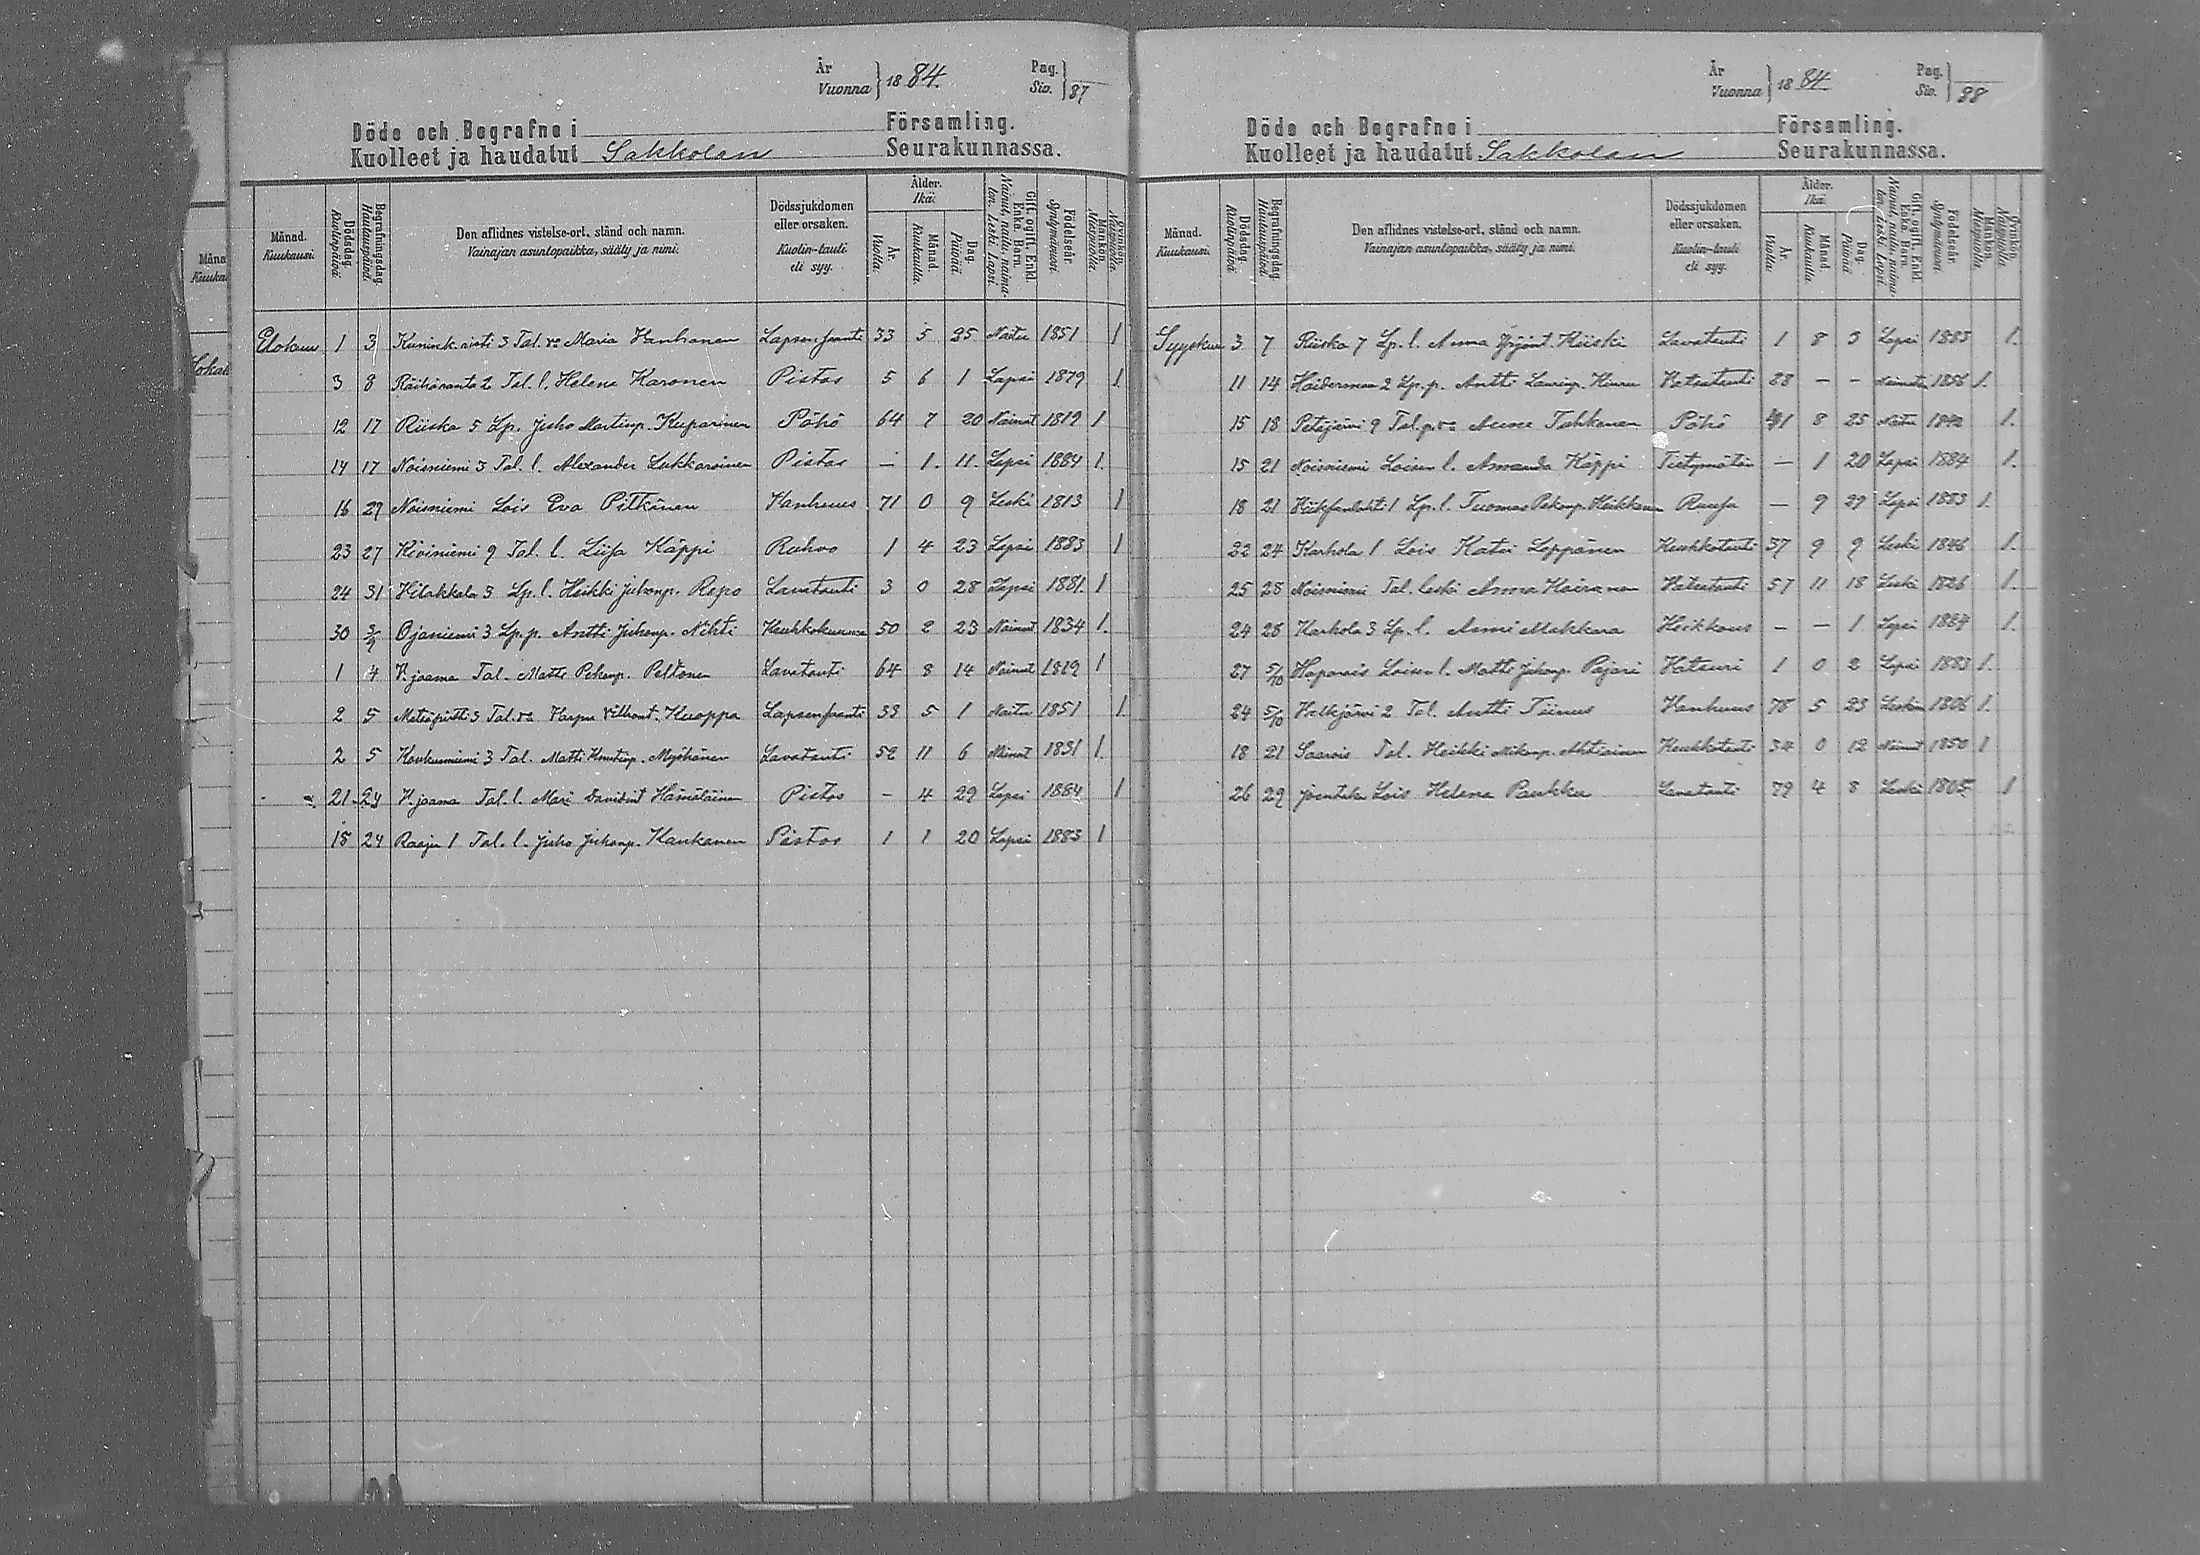 År
Vuonna } 1884.
Pag.
Siv. } 87
Döde och Begrafne i Församling.
Kuolleet ja haudatut Sakkolan Seurakunnassa.
Månad. Kuukausi.
Dödsdag. Kuolinpäivä.
Begrafningsdag. Hautauspäivä.
Den aflidnes vistelse-ort, stånd och namn. Vainajan asuntopaikka, sääty ja nimi.
Dödssjukdomen eller orsaken. Kuolin-tauti eli syy.
Ålder. Ikä.
År. Vuotta. Månad. Kuukautta. Dag. Päivää.
Gift, ogift, Enkl. Enka, Barn. Nainut, naitu, naimaton, Leski, Lapsi.
Födelseår. Syntymävuosi.
Mankön. Miespuolia.
Qvinkön. Naispuolia.
Elokuu 1 3 Kunink. risti 3 Tal. vo Maria Hanhanen Lapsenjuanti 33 5 25 Naitu 1851 1
3 8 Räihäranta 2 Tal. l. Helena Karonen Pistos 5 6 1 Lapsi 1879 1.
12 17 Riiska 5 Lp. Juho Martinp. Kuparinen Pöhö 64 7 20 Nainut 1819 1
14 17 Noisniemi 3 Tal. l. Alexander Lukkaroinen Pistos — 1. 11. Lapsi 1884 1.
16 29 Noisniemi Lois Eva Pitkänen Vanhuus 71 0 9 Leski 1813 1
23 27 Kiviniemi 9 Tal. l. Liisa Käppi Rohvo 1 4 23 Lapsi 1883 1
24 31 Vilakkala 5 Lp. l. Heikki Juhonp. Repo Lavatauti 3 0 28 Lapsi 1881. 1.
30 3/9 Ojaniemi 3 Lp. p. Antti Juhonp. Nihti Keuhkokuume 50 2 23 Nainut 1834 1.
1 4 V. jaama Tal. Matti Pekanp. Peltonen Lavatauti 64 8 14 Nainut 1819 1
2 5 Metsäpirtti 3 Tal. vo Varpu Vilhont. Kuoppa Lapsenjuanti 33 5 1 Naitu 1851 1.
2 5 Koukunniemi 3 Tal. Matti Knutinp. Myöhänen Lavatauti 52 11 6 Nainut 1831 1.
21 24 V. jaama Tal. l. Mari Davidint Hämäläinen Pistos — 4 29 Lapsi 1884 1
18 24 Raaju 1 Tal. l. Juho Juhonp. Kaukanen Pistos 1 1 20 Lapsi 1883 1
År
Vuonna } 1884.
Pag.
Siv. } 88
Döde och Begrafne i Församling.
Kuolleet ja haudatut Sakkolan Seurakunnassa.
Månad. Kuukausi.
Dödsdag. Kuolinpäivä.
Begrafningsdag. Hautauspäivä.
Den aflidnes vistelse-ort, stånd och namn. Vainajan asuntopaikka, sääty ja nimi.
Dödssjukdomen eller orsaken. Kuolin-tauti eli syy.
Ålder. Ikä.
År. Vuotta. Månad. Kuukautta. Dag. Päivää.
Gift, ogift, Enkl. Enka, Barn. Nainut, naitu, naimaton, Leski, Lapsi.
Födelseår. Syntymävuosi.
Mankön. Miespuolia.
Qvinkön. Naispuolia.
Syyskuu 3 7 Riiska 7 Lp. l. Anna Yrjönt. Kiiski Lavatauti 1 8 3 Lapsi 1883 1.
11 14 Haiderman 2 Lp. p. Antti Laurinp. Kiuru Vatsatauti 28 — — 1856 1.
15 18 Petäjärvi 9 Tal. p. vo Tuhkanen Pöhö 41 8 25 Naitu 1842 1.
15 21 Noisniemi Loisen l. Amanda Käppi Tietymätön — 1 20 Lapsi 1884 1.
18 21 1 Lp. l. Tuomas Pekanp. Heikkanen — 9 27 Lapsi 1883 1.
22 24 Karhola 1 Lois Katri Leppänen Keuhkotauti 37 9 9 Leski 1846 1.
25 28 Noisniemi Tal. leski Anna Hairanen Vatsatauti 57 11 18 Leski 1826 1.
24 28 Karhola 3 Lp. l. Anni Makkara Heikkous — — 1 Lapsi 1884 1.
27 5/10 Haparais Loisen l. Matti Juhonp. Pajari Hatsuri 1 0 2 Lapsi 1883 1.
24 5/10 Valkjärvi 2 Tal. Antti Tiinus Vanhuus 78 5 23 Leskim 1806 1.
18 21 Saarois Tal. Heikki Mikonp. Ahtiainen Keuhkotauti 34 0 12 Nainut 1850 1
26 29 Lois Helena Paukku Lavatauti 79 4 8 Leski 1805 1